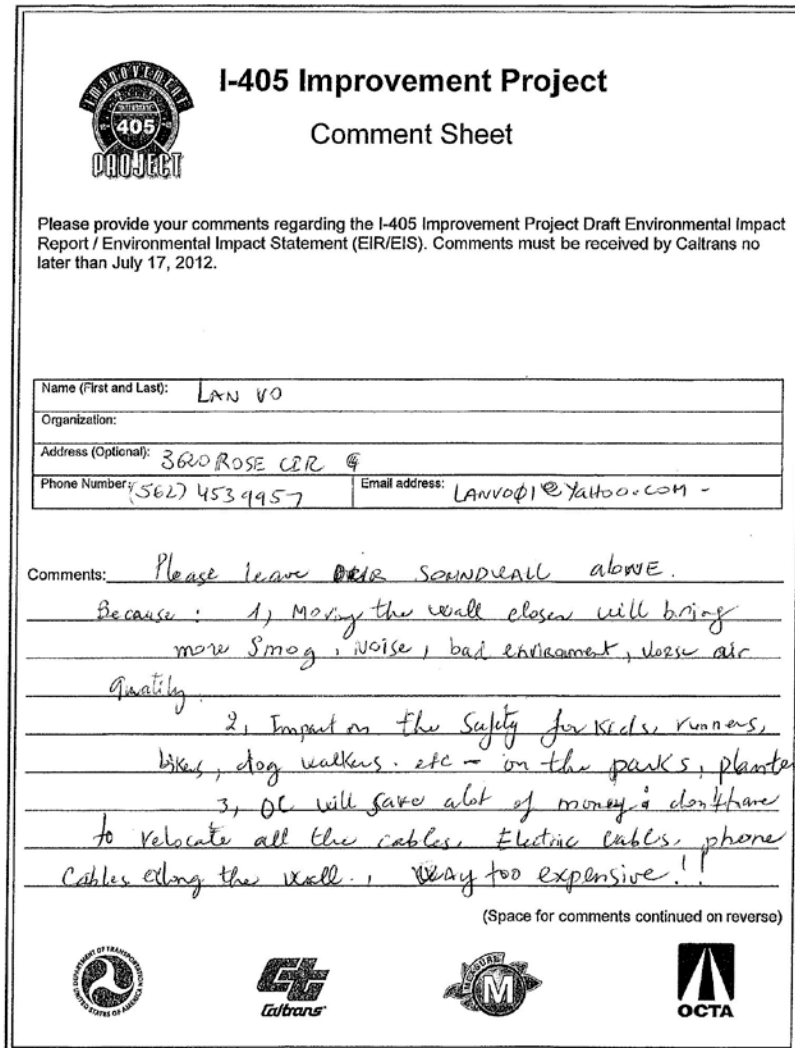 IMPROVEMENT
INTERSTATE
405
PROJECT
I-405 Improvement Project
Comment Sheet
Please provide your comments regarding the I-405 Improvement Project Draft Environmental Impact
Report / Environmental Impact Statement (EIR/EIS). Comments must be received by Caltrans no
later than July 17, 2012.
Name (First and Last): LAN VO
Organization:
Address (Optional): 3620 ROSE CIR
Phone Number: (562) 453 9957 Email address: LANVO01@YAHOO.COM -
Comments: Please leave OUR SOUNDWALL alone.
Because : 1, Moving the wall closer will bring
more Smog, Noise, bad enviroment, worse air
Quatily
2, Impart on the Safety for Kids, runners,
bikes, dog walkers. etc - on the parks, planter
3, OC will save alot of money & don't have
to relocate all the cables, Electric cables, phone
Cables along the wall., WAy too expensive!!
(Space for comments continued on reverse)
DEPARTMENT OF TRANSPORTATION
UNITED STATES OF AMERICA
Ct
Caltrans
MEASURE
M
OCTA